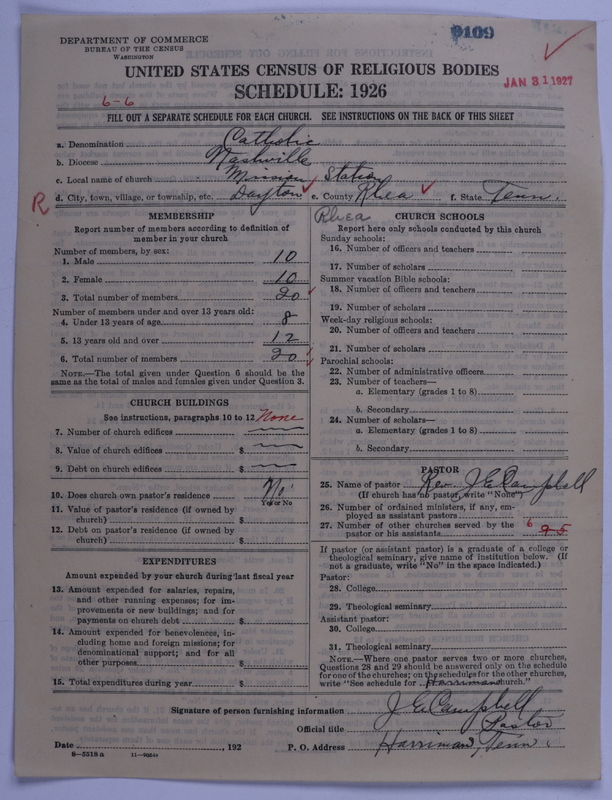 9109
DEPARTMENT OF COMMERCE
BUREAU OF THE CENSUS
WASHINGTON
UNITED STATES CENSUS OF RELIGIOUS BODIES
JAN 31 1927
SCHEDULE: 1926
6-6
FILL OUT A SEPARATE SCHEDULE FOR EACH CHURCH. SEE INSTRUCTIONS ON THE BACK OF THIS SHEET
a. Denomination Catholic
b. Diocese Nashville
c. Local name of church Mission Station
R d. City, town, village, or township, etc. Dayton e. County Rhea f. State Tenn.
Rhea
MEMBERSHIP
Report number of members according to definition of
member in your church
Number of members, by sex:
1. Male 10
2. Female 10
3. Total number of members 20
Number of members under and over 13 years old:
4. Under 13 years of age 8
5. 13 years old and over 12
6. Total number of members 20
NOTE.—The total given under Question 6 should be the
same as the total of males and females given under Question 3.
CHURCH BUILDINGS
See instructions, paragraphs 10 to 12 None
7. Number of church edifices
8. Value of church edifices $
9. Debt on church edifices $
10. Does church own pastor's residence No
Yes or No
11. Value of pastor's residence (if owned by
church) $
12. Debt on pastor's residence (if owned by
church) $
EXPENDITURES
Amount expended by your church during last fiscal year
13. Amount expended for salaries, repairs,
and other running expenses; for im-
provements or new buildings; and for
payments on church debt $
14. Amount expended for benevolences, in-
cluding home and foreign missions; for
denominational support; and for all
other purposes $
15. Total expenditures during year $
CHURCH SCHOOLS
Report here only schools conducted by this church
Sunday schools:
16. Number of officers and teachers
17. Number of scholars
Summer vacation Bible schools:
18. Number of officers and teachers
19. Number of scholars
Week-day religious schools:
20. Number of officers and teachers
21. Number of scholars
Parochial schools:
22. Number of administrative officers
23. Number of teachers—
a. Elementary (grades 1 to 8)
b. Secondary
24. Number of scholars—
a. Elementary (grades 1 to 8)
b. Secondary
PASTOR
25. Name of pastor Rev. J E Campbell
(If church has no pastor, write "None")
26. Number of ordained ministers, if any, em-
ployed as assistant pastors
27. Number of other churches served by the
pastor or his assistants 6
If pastor (or assistant pastor) is a graduate of a college or
theological seminary, give name of institution below. (If
not a graduate, write "No" in the space indicated.)
Pastor:
28. College
29. Theological seminary
Assistant pastor:
30. College
31. Theological seminary
NOTE.—Where one pastor serves two or more churches,
Questions 28 and 29 should be answered only on the schedule
for one of the churches; on the schedules for the other churches,
write "See schedule for Harriman church."
Signature of person furnishing information J E Campbell
Official title Pastor
Date , 192 P. O. Address Harriman, Tenn.
8-5518 a